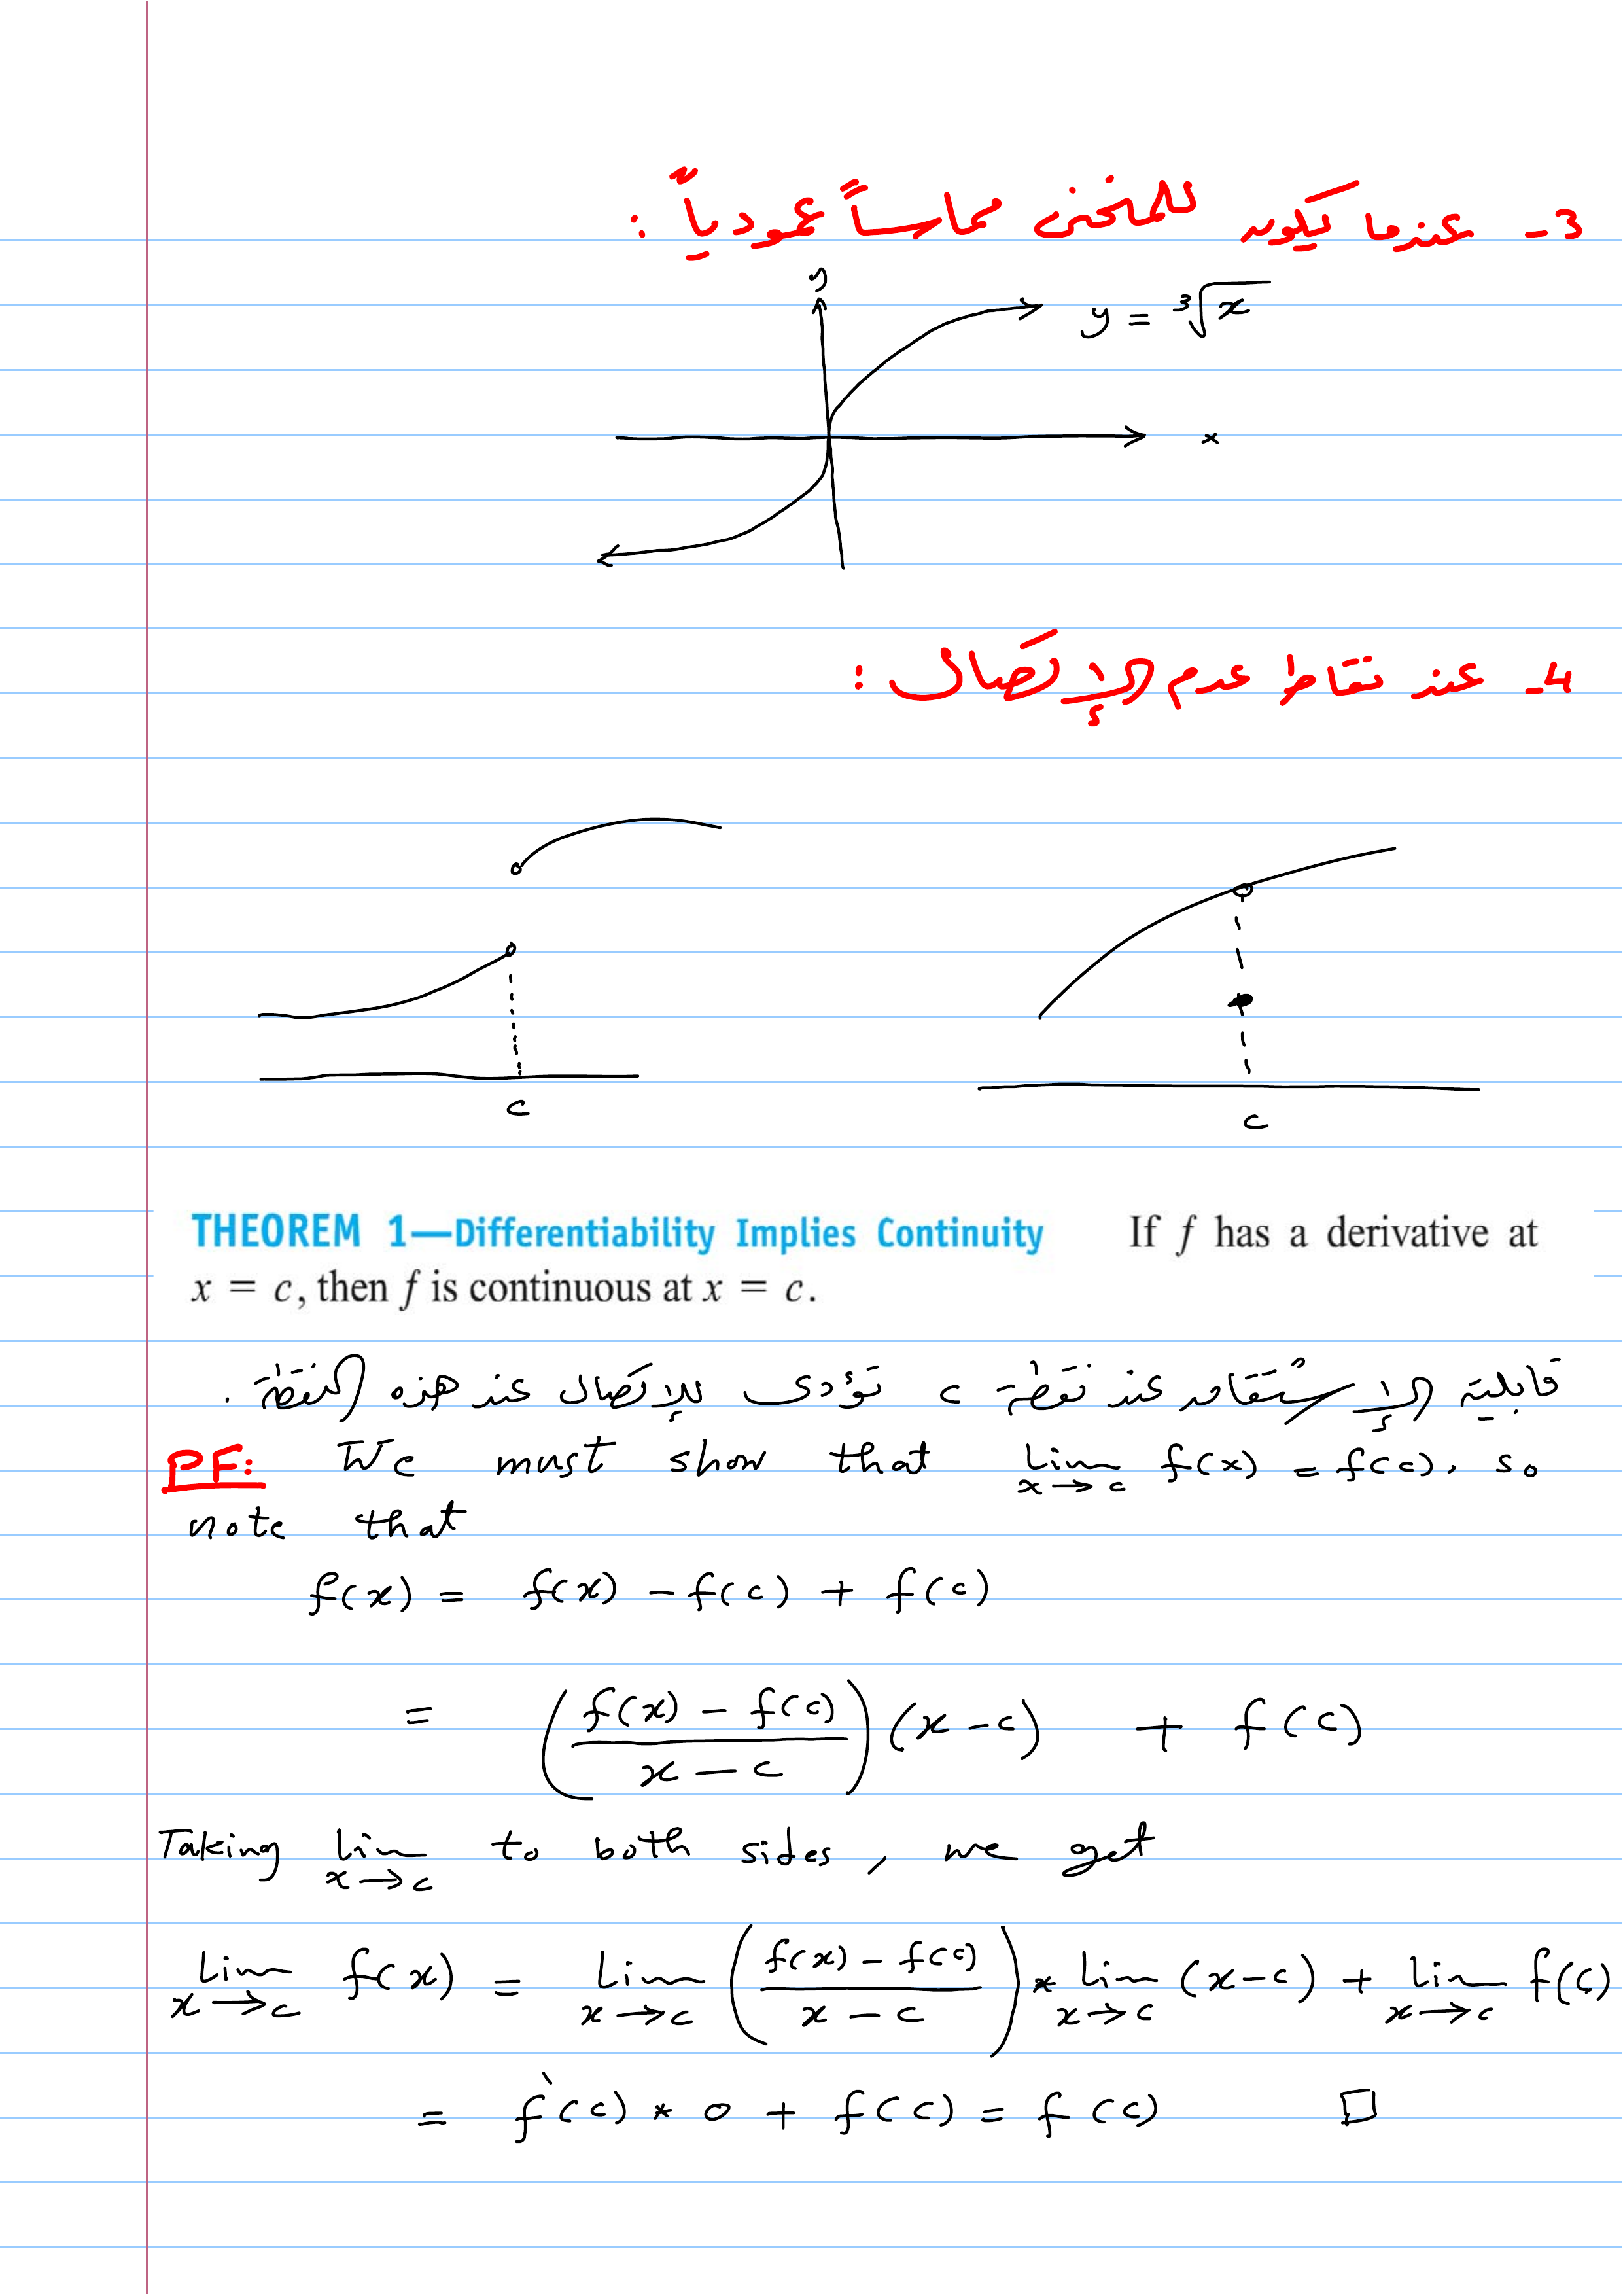 3- عندما يكون للمنحنى مماساً عمودياً :
y
y = ∛x
x
4- عند نقاط عدم الإتصال :
c
c
THEOREM 1—Differentiability Implies Continuity If f has a derivative at
x = c, then f is continuous at x = c.
قابلية الإشتقاق عند نقطة c تؤدى للإتصال عند هذه النقطة .
PF: We must show that lim x→c f(x) = f(c), so
note that
f(x) = f(x) - f(c) + f(c)
= ((f(x) - f(c))/(x - c)) (x - c) + f(c)
Taking lim x→c to both sides, we get
lim x→c f(x) = lim x→c ((f(x) - f(c))/(x - c)) * lim x→c (x-c) + lim x→c f(c)
= f'(c) * 0 + f(c) = f(c) □